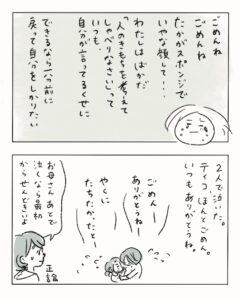 ごめんね
ごめんね
たかがスポンジで
いやな顔して…
わたしはばかだ
「人のきもちを考えて
しゃべりなさい」って
いつも
自分が言ってるくせに
できるなら八分前に
戻って自分をしかりたい
2人で泣いた。
テイコ、ほんとごめん。
いつもありがとうね。
ごめんー
ありがとうねー
やくに
たちたかったとー
お母さんあとで
泣くなら最初
からせんどきいよ
正論